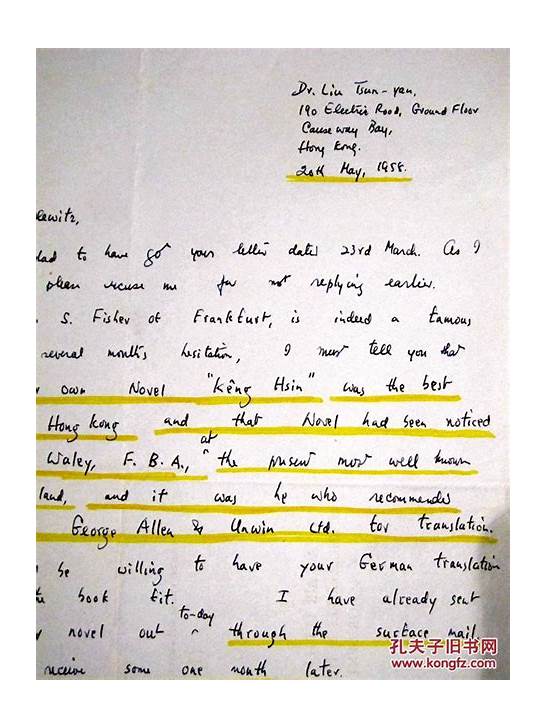 Dr. Liu Tsun-yan,
190 Electric Road, Ground Floor
Causeway Bay,
Hong Kong.
20th May, 1958.
lewitz,
lad to have got your letter dated 23rd March. As I
please excuse me for not replying earlier.
. S. Fisher of Frankfurt, is indeed a famous
several month's hesitation, I must tell you that
own Novel "Kêng Hsin" was the best
Hong Kong and that Novel had been noticed
Waley, F. B. A., at the present most well known
land, and it was he who recommended
George Allen & Unwin Ltd. for translation.
be willing to have your German translation
the book fit. I have already sent
novel out to-day through the surface mail,
receive some one month later.
孔夫子旧书网
www.kongfz.com